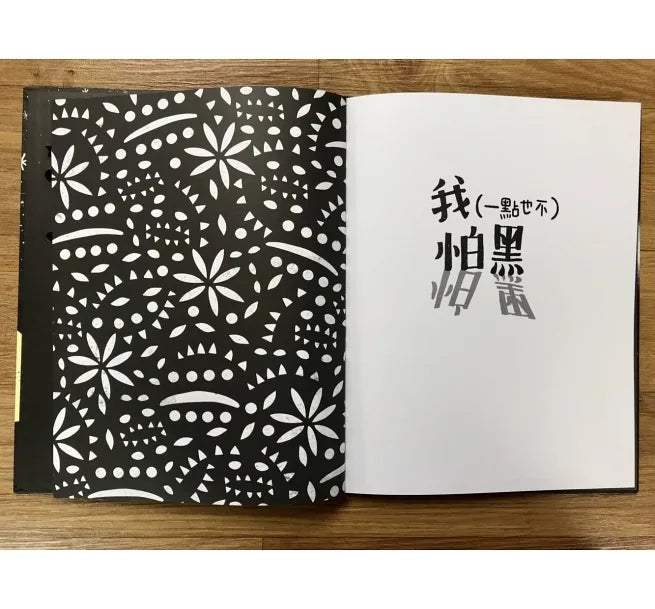 我(一點也不)
怕黑